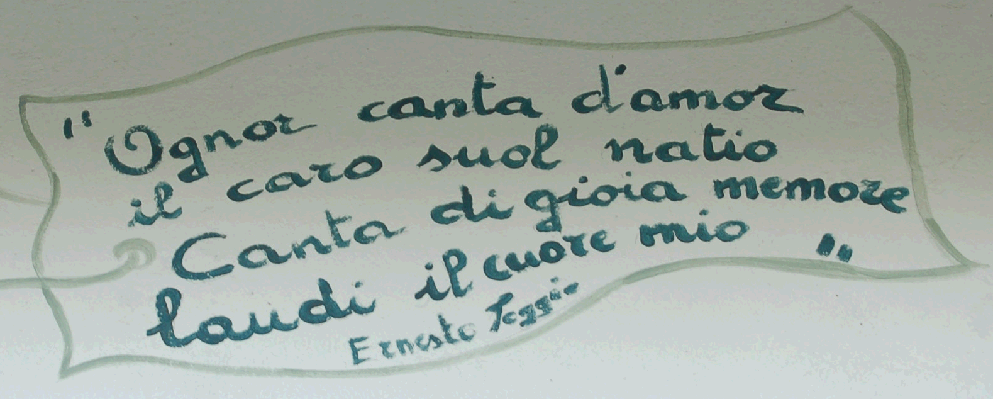 "Ognor canta d'amor
il caro suol natio
Canta di gioia memore
laudi il cuore mio "
Ernesto